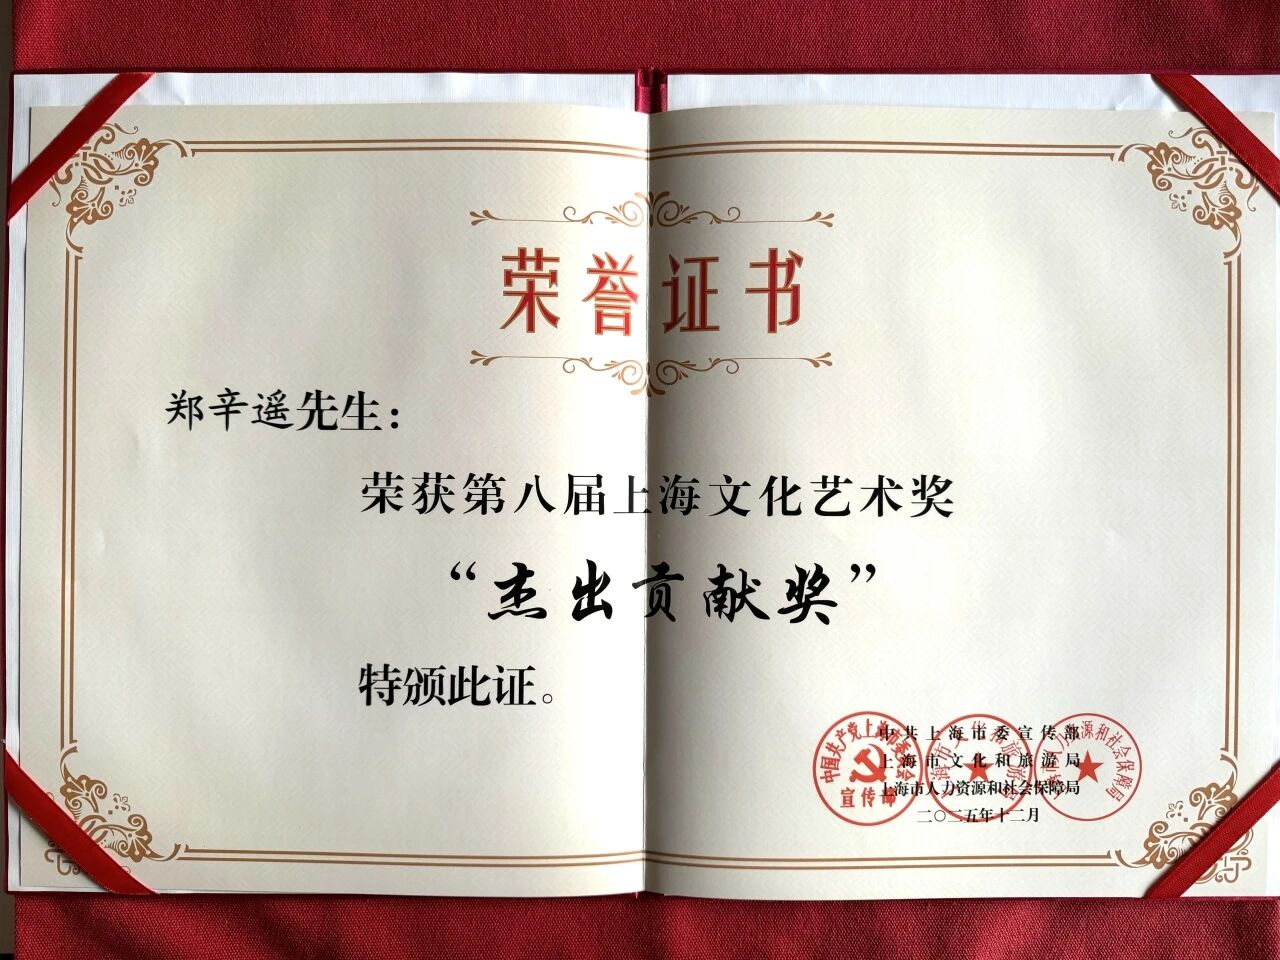 荣誉证书
郑辛遥先生：
荣获第八届上海文化艺术奖
“杰出贡献奖”
特颁此证。
中共上海市委宣传部
上海市文化和旅游局
上海市人力资源和社会保障局
二〇二五年十二月
中国共产党上海市委员会
宣传部
上海市文化和旅游局
上海市人力资源和社会保障局